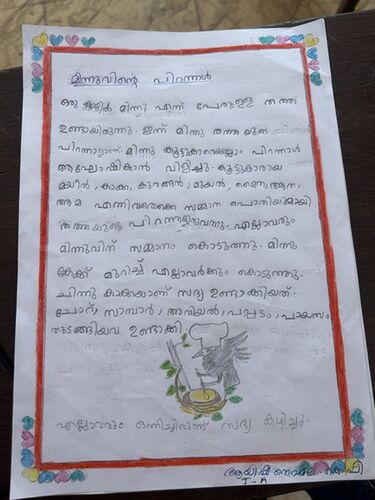 മിന്നുവിന്റെ പിറന്നാൾ
ഒരു കാട്ടിൽ മിന്നു എന്ന് പേരുള്ള തത്ത
ഉണ്ടായിരുന്നു. ഇന്ന് മിന്നു തത്തയുടെ
പിറന്നാളാണ്. മിന്നു കൂട്ടുകാരെയെല്ലാം പിറന്നാൾ
ആഘോഷിക്കാൻ വിളിച്ചു. കൂട്ടുകാരായ
മയിൽ, കാക്ക, കുറങ്ങൻ, മുയൽ, മൈന, ആന,
ആമ എന്നിവരൊക്കെ സമ്മാന പൊതിയുമായി
തത്തയുടെ പിറന്നാളിനുവന്നു. എല്ലാവരും
മിന്നുവിന് സമ്മാനം കൊടുത്തു. മിന്നു
കേക്ക് മുറിച്ച് എല്ലാവർക്കും കൊടുത്തു.
ചിന്നു കാക്കയാണ് സദ്യ ഉണ്ടാക്കിയത്.
ചോറ്, സാമ്പാർ, അവിയൽ, പപ്പടം, പായസം
തുടങ്ങിയവ ഉണ്ടാക്കി
എല്ലാവരും ഒന്നിച്ചിരുന്ന് സദ്യ കഴിച്ചു.
ആയിഷ
I-A